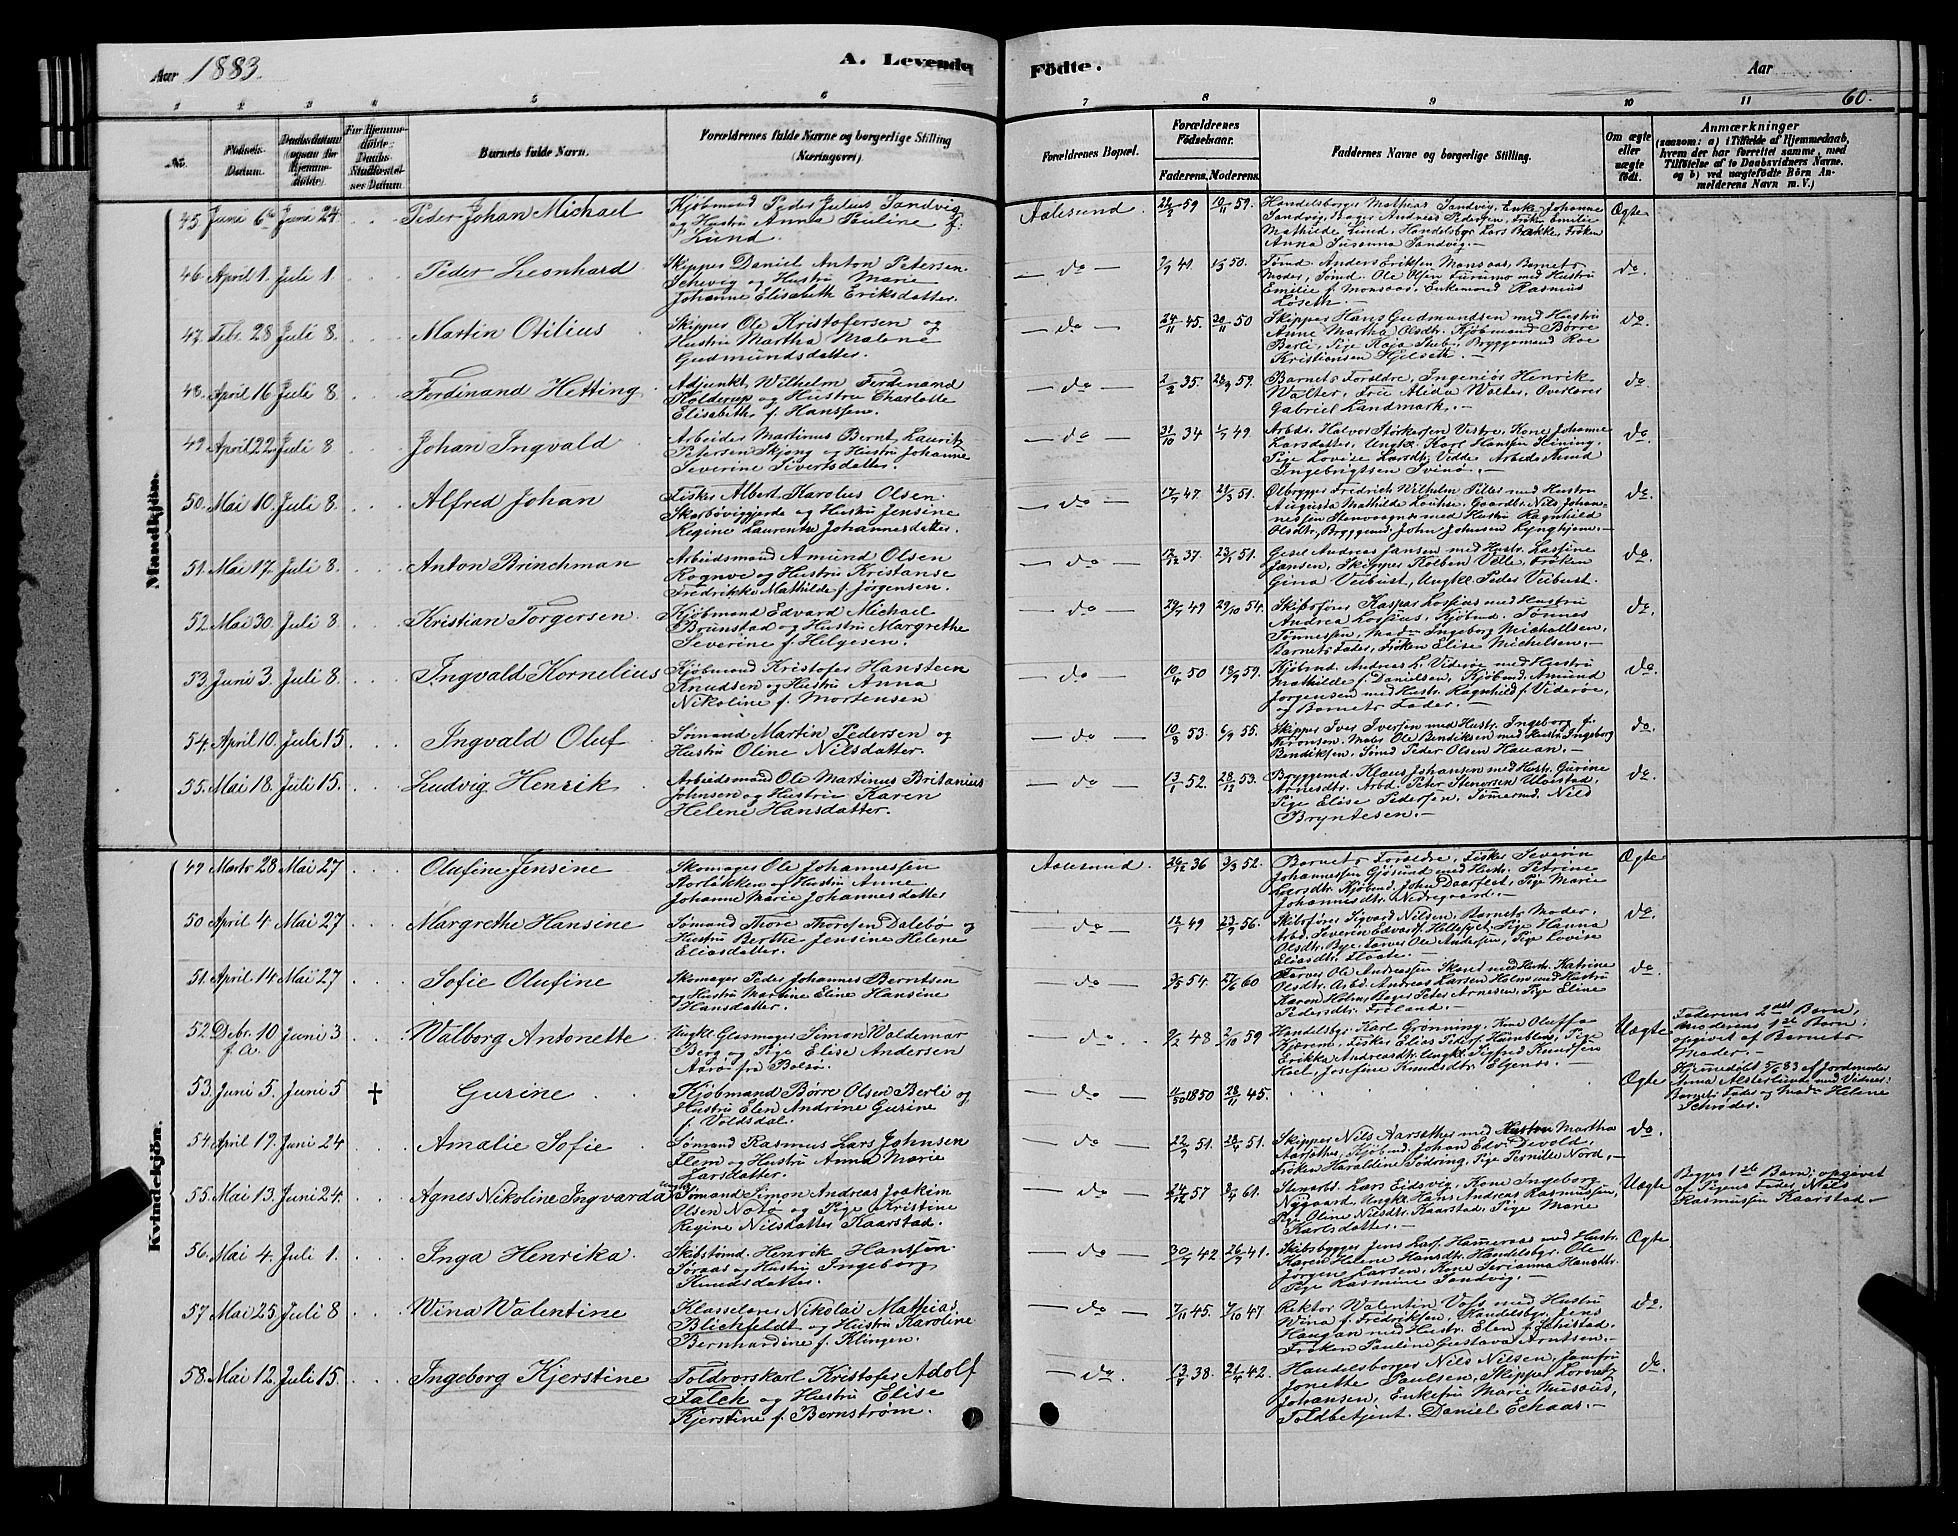 Aar 1883. A. Levende Födte. Aar 60.
1 2 3 4 5 6 7 8 9 10 11
No. Födsels-Datum. Daabsdatum (ogsaa for Hjemmedöbte). For Hjemmedöbte: Daabs-Stadfæstelses Datum. Barnets fulde Navn. Forældrenes fulde Navne og borgerlige Stilling (Næringsvei). Forældrenes Bopæl. Forældrenes Födselsaar. Faderens. Moderens. Faddernes Navne og borgerlige Stilling. Om ægte eller uægte födt. Anmærkninger
(saasom: a) i Tilfælde af Hjemmedaab,
hvem der har forrettet samme, med
Tilföielse af to Daabsvidners Navne.
og b) ved uægtefödte Börn Anmelderens Navn m. V.)
Mandkjön.
45. Juni 6te Juni 24 Peder Johan Michael
Kjöbmand Peder Julius Sandvig
og Hustru Anna Pauline f.
Lund.
Aalesund. 59 10/11 59.
Handelsborger Mathias Sandvig, Enke Johanne
Sandvig, Bager Andreas Pedersen, Fröken Emilie
Mathilde Lund, Handelsbgr. Lars Bakke, Fröken
Anna Susanna Sandvig.
Ægte
46. April 1. Juli 1. Peder Leonhard
Skipper Daniel Anton Petersen
Schevig og Hustru Marie
Johanne Elisabeth Eriksdatter.
do 41. 50.
Sömd. Anders Eriksen Monsaas, Barnets
Moder, Sömd. Ole Olsen Furumo med Hustru
Emilie f. Monsaas, Enkemand Rasmus
Löseth.
do.
47. Febr. 28 Juli 8. Martin Otilius
Skipper Ole Kristofersen og
Hustru Martha Malene
Gudmundsdatter.
do 24/11 45. 20/11 50
Skipper Hans Gudmundsen med Hustru
Anne Martha Olsdtr. Kjöbmand Börre
Berli, Pige Kaja Stub, Bryggemand Roe
Kristiansen Hjelseth.
do
48. April 16 Juli 8. Ferdinand Hetting
Adjunkt Wilhelm Ferdinand
Holderup og Hustru Charlotte
Elisabeth f. Hanssen.
do 2/2 35. 59.
Barnets Foreldre, Ingeniör Henrik
Walter, Frue Alida Walter, Overlærer
Gabriel Landmark.
do
49. April 22. Juli 8. Johan Ingvald
Arbeider Martinus Bernt Laurits
Petersen Skjong og Hustru Johanne
Severine Sivertsdatter.
do 31/10 34 1/7 49.
Arbdr. Halvor Störkersen Vestre, Kone Johanne
Larsdatter, Ungk. Karl Hansen Hining,
Pige Lovise Larsdtr. Vedde Arbeids. Knud
Ingebrigtsen Svinö.
do.
50. Mai 10. Juli 8. Alfred Johan
Fisker Albert Karolus Olsen
Skarbövigjerde og Hustru Jensine
Regine Laurentse Johannesdatter.
do 17/7 47. 51.
Ölbrygger Fredrich Wilhelm Piller med Hustru
Augusta Mathilde Lovise. Gaardbr. Nils Johannessen Stenvaagnes med Hustru Ragnhild
Olsdtr. Bryggemd. John Johnsen Lynghjem.
do.
51. Mai 17. Juli 8. Anton Brinchman
Arbeidsmand Amund Olsen
Rogne og Hustru Kristanse
Fredrikke Mathilde f. Jörgensen.
do 37. 51.
Gesel Andreas Jansen med Hustr. Lassine
Jansen, Skipper Kolben Velle, Fröken
Gina Veibust, Ungkl. Peder Veibust.
do
52. Mai 30. Juli 8 Kristian Torgersen
Kjöbmand Edvard Michael
Brunstad og Hustru Margrethe
Severine f. Helgesen.
do 49 29/10 54.
Skibsförer Kaspar Lossius med Hustru
Andrea Lossius, Kjöbmd. Tönnes
Tönnessen, Madm. Ingeborg Michallsen,
Barnets Fader, Fröken Elise Michelsen.
do
53. Juni 3. Juli 8. Ingvald Kornelius
Kjöbmand Kristofer Hansteen
Knudsen og Hustru Anna
Nikoline f. Mortensen
do 50 59.
Kjöbmd. Andreas L. Videröe med Hustru
Mathilde f. Danielsen, Kjöbmd. Amund
Jörgensen med Hustr. Ragnhild f. Videröe,
og Barnets Fader.
do.
54. April 10. Juli 15. Ingvald Oluf
Sömand Martin Pedersen og
Hustru Oline Nilsdatter.
do 10/8 53. 55.
Skipper Iver Iversen med Hustr. Ingeborg f.
Aronsen. Maler Ole Bendiksen med Hustru Ingeborg
Bendiksen, Sömd Peder Olsen Hauan.
do.
55. Mai 18. Juli 15. Ludvig Henrik
Arbeidsmand Ole Martinus Britanius
Johnsen og Hustru Karen
Helene Hansdatter.
do 13/1 52. 28/12 53.
Bryggemd. Klaus Johansen med Hustr. Gurine
Arnesdtr. Arbd. Peter Stenersen Ulvestad,
Pige Elise Pedersen, Tömermd. Nils
Bryntesen.
do
Kvindekjön.
49 Marts 28 Mai 27 Olufine Jensine
Skomager Ole Johannessen
Storlökken og Hustru Anne
Johanne Marie Johannesdatter
Aalesund. 36 52.
Barnets Foreldre, Fisker Severin
Johannessen Gjösund med Hustr. Petrine
Larsdtr. Kjöbmd. John Daarflot, Pige Marie
Johannesdtr. Nedregaard.
Ægte
50 April 4 Mai 27 Margrethe Hansine
Sömand Thore Thorsen Dalebö og
Hustru Berthe Jensine Helene
Eliasdatter.
do 12/1 49 56.
Skibsförer Sigvard Nilsen, Barnets Moder,
Arbd. Severin Edvard Hellesylt, Pige Hanna
Olsdtr. Bye, Farver Ole Andersen, Pige Lovise
Eliasdtr. Flaate.
do.
51. April 14 Mai 27 Sofie Olufine
Skomager Peder Johannes Berntsen
og Hustru Martine Eline Hansine
Hansdatter.
do 54. 60
Farver Ole Andreassen Skaret med Hustr. Katrine
Olsdtr. Arbd. Andreas Larsen Holm med Hustru
Karen Holm, Bager Peter Arnesen, Pige Eline
Pedersdtr. Fröland.
do.
52 Debr. 10 f. A. Juni 3 Walborg Antonette
Ungkl. Glasmager Simon Valdemar
Berg og Pige Elise Andersen
Aarö fra Bolsö.
do. 48 2/10 59
Handelsbgr. Karl Grönning, Kone Oluffa
Kjærem, Fisker Elias Peders. Humblen, Pige
Erikka Andreasdtr. Ungkl. Sigfred Knudsen
Hoel, Josefine Knudsdtr. Elgenes.
Uægte
Faderens 2det Barn,
Moderens 1ste Barn;
opgivet af Barnets
Moder.
53. Juni 5. Juni 5 † Gurine
Kjöbmand Börre Olsen Berli og
Hustru Elen Andrine Gurine
f. Voldsdal.
do 1850 28/11 45.
Ægte
Hjemedöbt 5/6 83 af Jordmoder
Anna Alsterlunde med Vidner:
Barnets Fader og Madm Helene
Schröder.
54 April 17. Juni 24 Amalie Sofie
Sömand Rasmus Lars Johnsen
Flem og Hustru Anna Marie
Larsdatter.
do 51. 51.
Skipper Nils Aarsether med Hustru Martha
Aarsether, Kjöbmd. Johan Edv. Devold,
Fröken Haraldine Södring, Pige Pernille Nord.
do.
55. Mai 13. Juni 24. Agnes Nikoline Ingvarda
Ungkl. Sömand Simon Andreas Joakim
Olsen Notö og Pige Kristine
Regine Nilsdatter Kaarstad.
do 24/12 57 61.
Stenarbd. Lars Eidsvig, Kone Ingeborg
Nygaard, Ungkl. Hans Andreas Rasmussen,
Pige Oline Nilsdtr. Kaarstad, Pige Marie
Karlsdatter.
Uægte
Begges 1ste Barn; opgivet
af Pigens Fader Nils
Rasmussen Kaarstad.
56. Mai 4. Juli 1. Inga Henrika.
Skibstömd. Henrik Hanssön
Söraas og Hustru Ingeborg
Knudsdatter.
do 42 41.
Skibsbygger Jens Hameraas med Hustr.
Karen Helene Hansdtr. Handelsbgr. Ole
Jörgene Larsen, Kone Serianna Hansdtr.
Pige Rasmine Sandvig.
Ægte
57 Mai 25. Juli 8 Wina Walentine
Klasselærer Nikolai Mathias
Blichfeldt og Hustru Karoline
Bernhardine f. Klingen.
do 7/11 45. 7/10 47
Rektor Walentin Voss med Hustru
Wina f. Fredriksen, Handelsbgr. Jens
Haugan med Hustr. Elen f. Schistad,
Fröken Pauline Gustava Arntsen.
do.
58. Mai 12. Juli 15. Ingeborg Kjerstine
Toldrorskarl Kristofer Adolf
Falch og Hustru Elise
Kjerstine f. Bernström.
do. 38. 42.
Handelsborger Nils Nilsen, Jomfru
Jonette Paulsen, Skipper Lorentz
Johansen, Enkefru Marie Musæus,
Toldbetjent Daniel Eckaas.
do